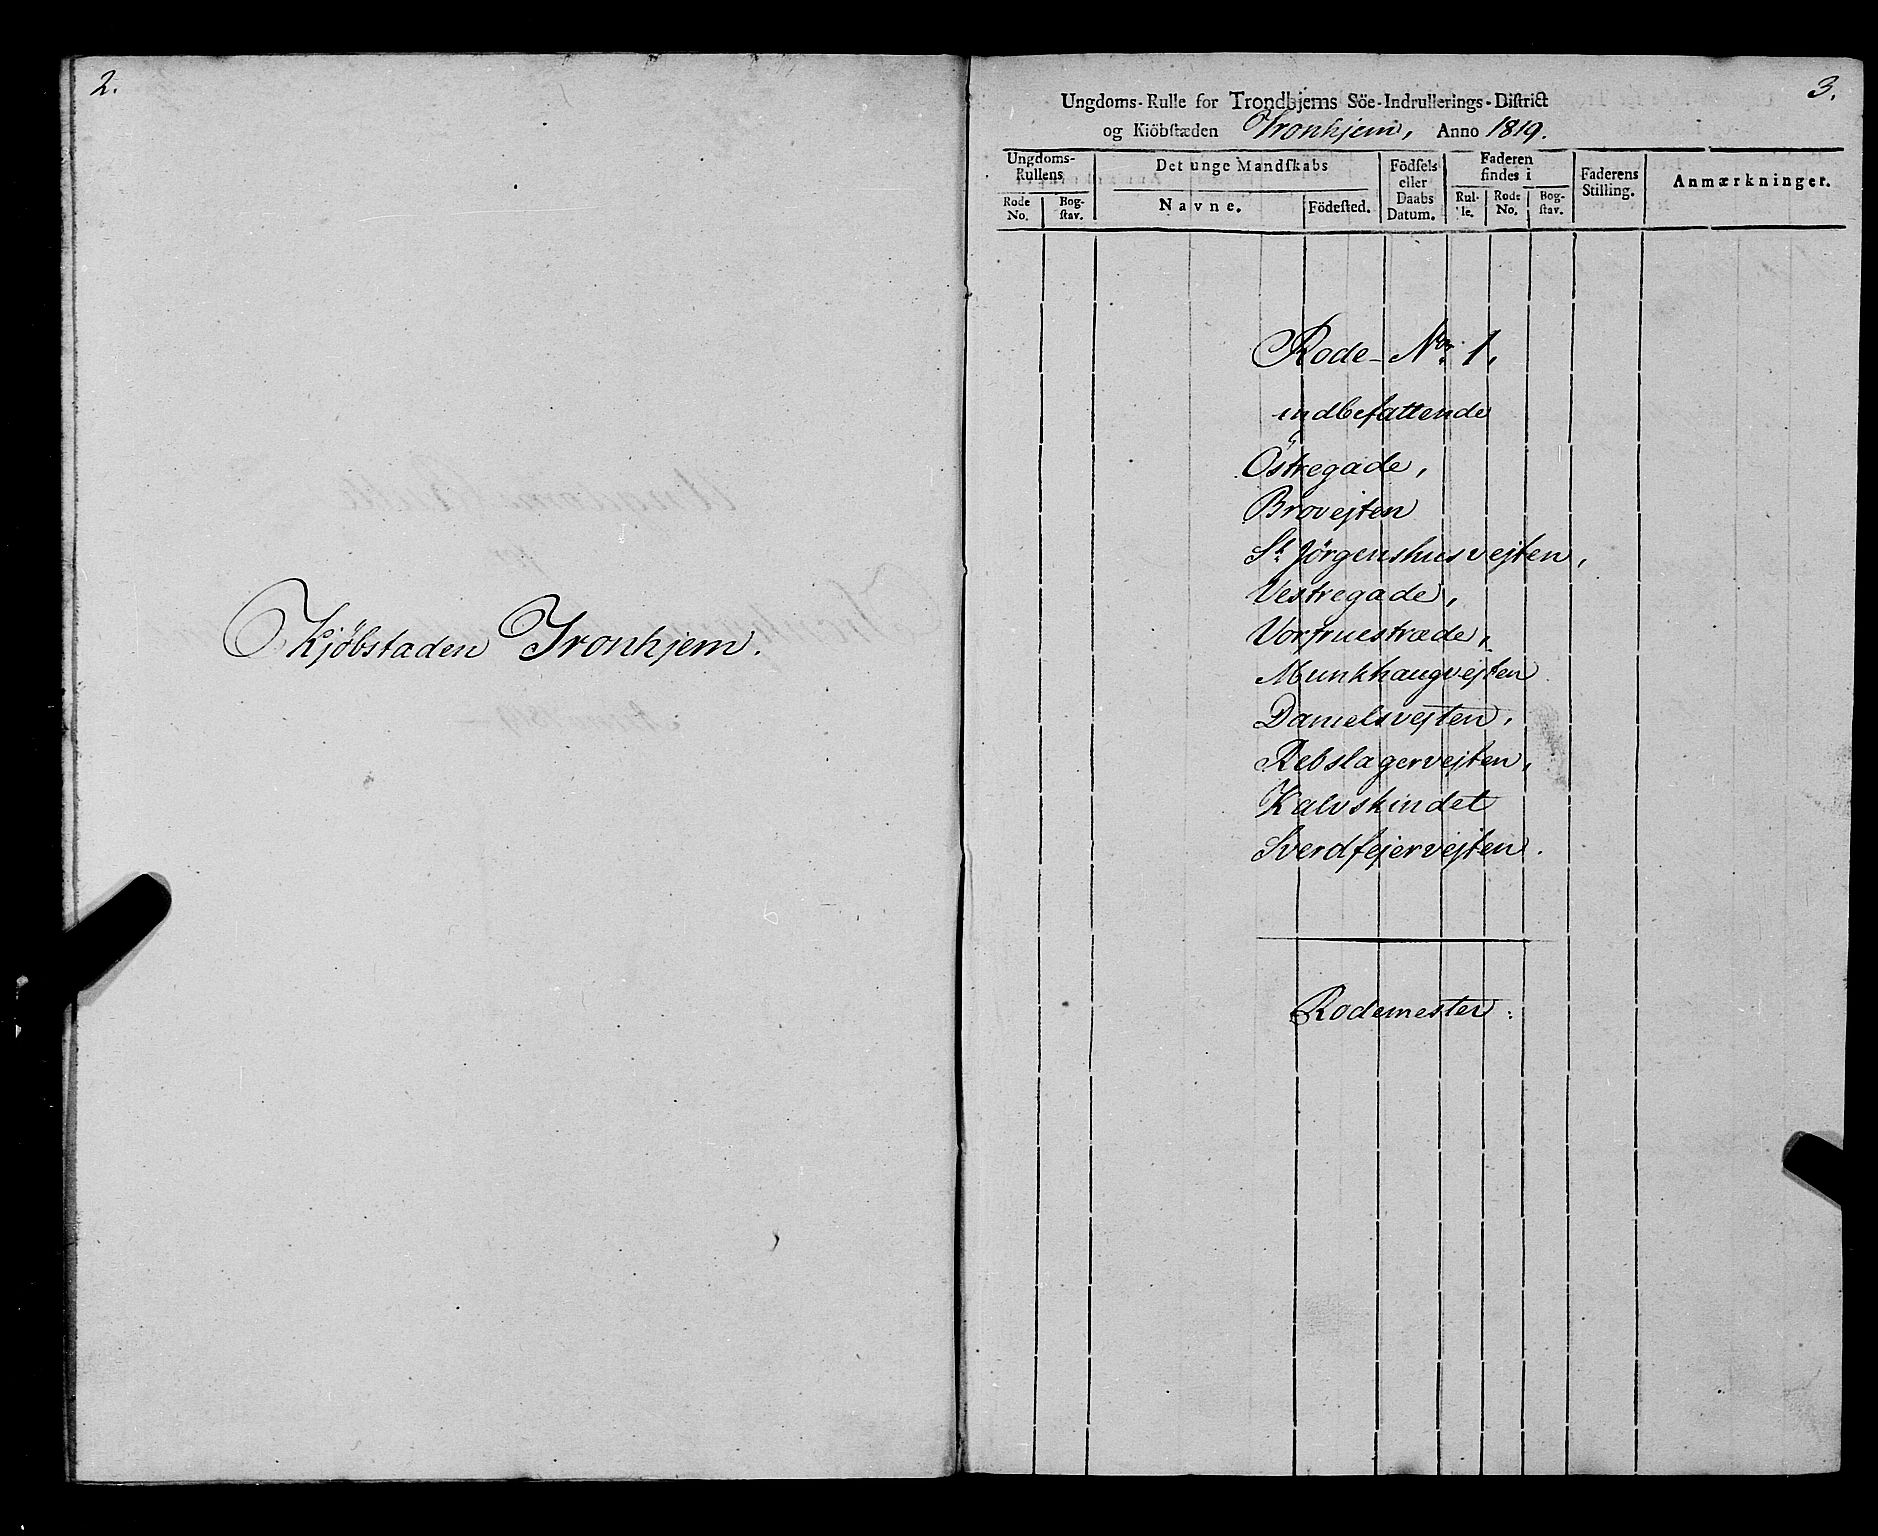 2.
Kjöbstaden Tronhjem.
3.
Ungdoms-Rulle for Trondhjems Söe-Indrullerings-District
og Kiöbstæden Tronhjem, Anno 1819.
Ungdoms-Rullens
Rode No.
Bog-stav.
Det unge Mandskabs
Navne.
Födested.
Födsels eller Daabs Datum.
Faderen findes i
Rul-le.
Rode No.
Bog-stav.
Faderens Stilling.
Anmærkninger.
Rode-No. 1.
indbefattende
Östregade,
Brovejten
St. Jörgenshusvejten,
Vestregade,
Vorfruestræde,
Munkhaugvejten
Danielsvejten,
Rebslagervejten,
Kalvskindet
Sverdfejervejten.
Rodemester: